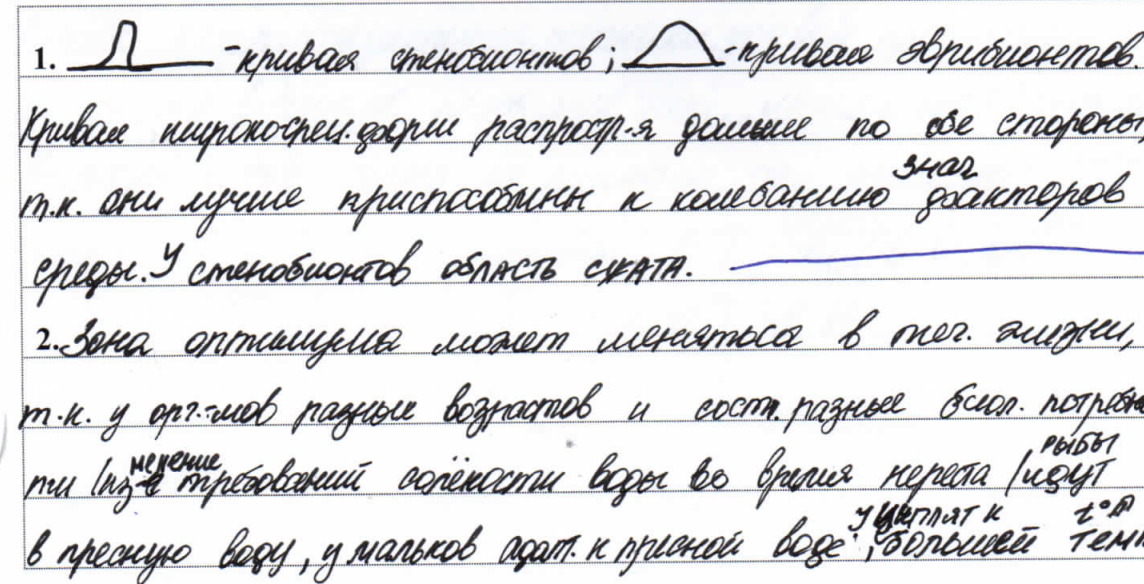 1. -кривая стенобионтов; -кривая эврибионтов.
Кривая широкоспец. форм распростр-я дальше по обе стороны,
т.к. они лучше приспособлены к колебанию знач. факторов
среды. У стенобионтов область сжата.
2. Зона оптимума может меняться в теч. жизни,
т.к. у орг-мов разных возрастов и сост. разные биол. потребнос
ти (изменение требований солёности воды во время нереста / рыбы идут
в пресную воду, у мальков адапт. к пресной воде; у цыплят к большей t°